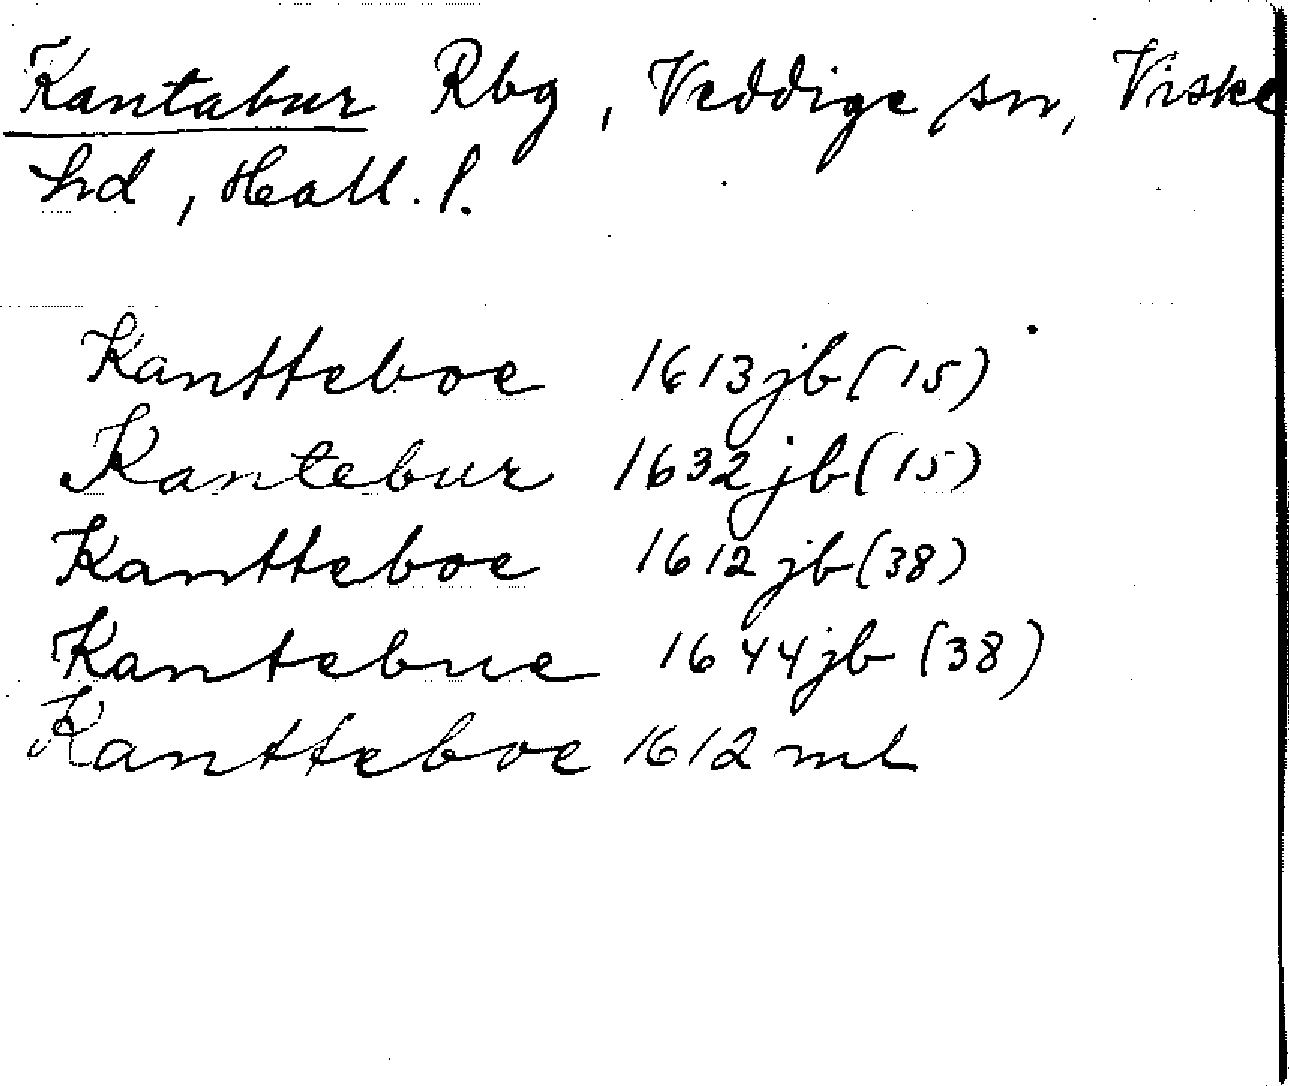 Kantabur Rbg, Veddige sn, Viske
hd, Hall. l.
Kantteboe 1613 jb (15)
Kantebur 1632 jb (15)
Kantteboe 1612 jb (38)
Kantebue 1644 jb (38)
Kantteboe 1612 ml